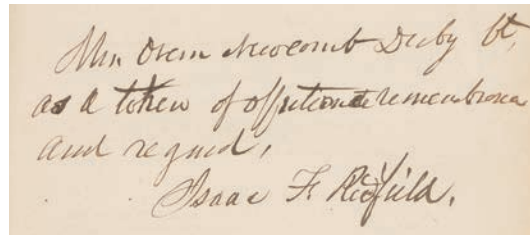 Mrs Orem Newcomb Derby Vt,
as a token of affectionate remembrance
and regard,
Isaac F. Redfield.